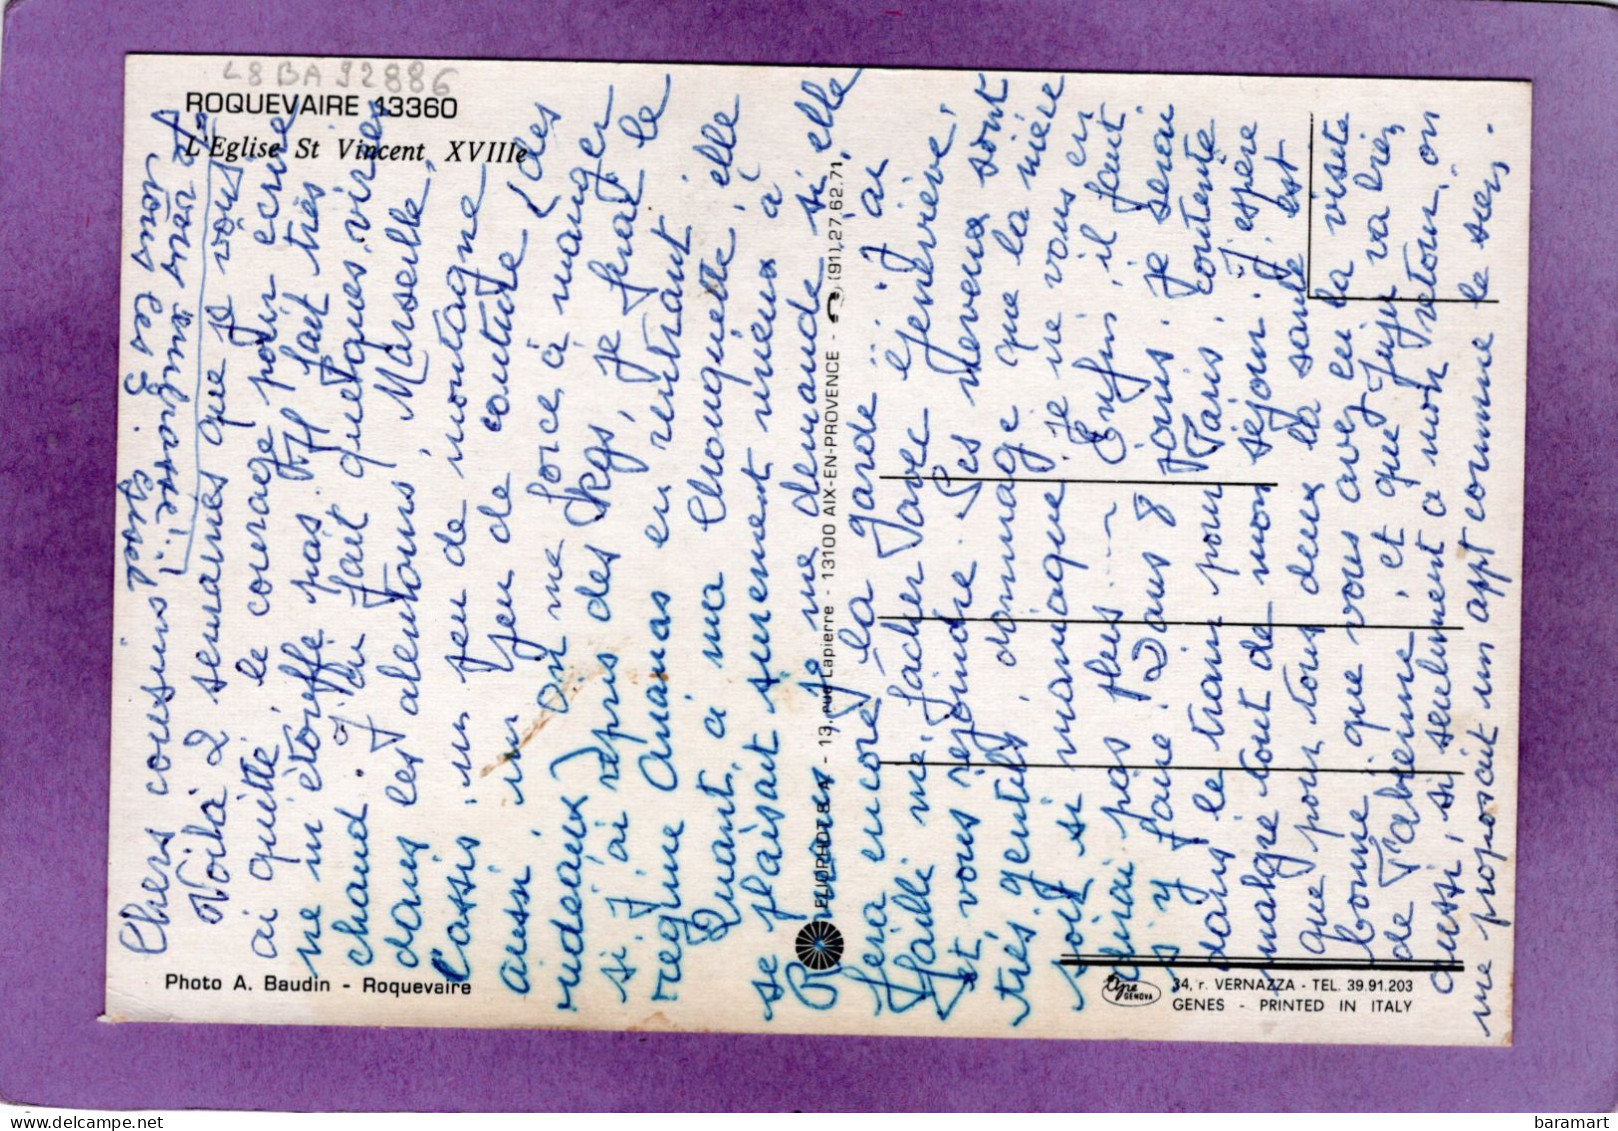 L8BA92886
ROQUEVAIRE 13360
L'Eglise St Vincent XVIIIe
Chers cousins
Voilà 2 semaines que je vous
ai quitté, le courage pour écrire
ne m'étouffe pas. Il fait très
chaud. J'ai fait quelques virées
dans les alentours, Marseille,
Cassis, un peu de montagne
aussi, un peu de couture (des
rideaux) on me force à manger
si j'ai repris des kgs, je ferai le
régime Ananas en rentrant
Quant, à ma Chouquette, elle
se plaisait surement mieux à
je me demande si elle
fera encore la garde !! J'ai
failli me facher avec Genevieve,
et vous rejoindre. Les neveux sont
très gentils, dommage que la mère
soit si maniaque, je ne vous en
dirai pas plus ... Enfin, il faut
s'y faire. Dans 8 jours, je serai
dans le train pour Paris, contente
malgré tout de mon séjour. J'espere
que pour tous deux la santé est
bonne, que vous avez eu la visite
de Fabienne, et que Juju va bien
aussi, si seulement à mon retour, on
me proposait un appt comme le sien.
Je vous embrasse
tous les 3. Gisel
ELIOPHOT S.A. - 13, rue Lapierre - 13100 AIX-EN-PROVENCE - (91).27.62.71
Photo A. Baudin - Roquevaire
GENOVA
34, r. VERNAZZA - TEL. 39.91.203
GENES - PRINTED IN ITALY
baramart